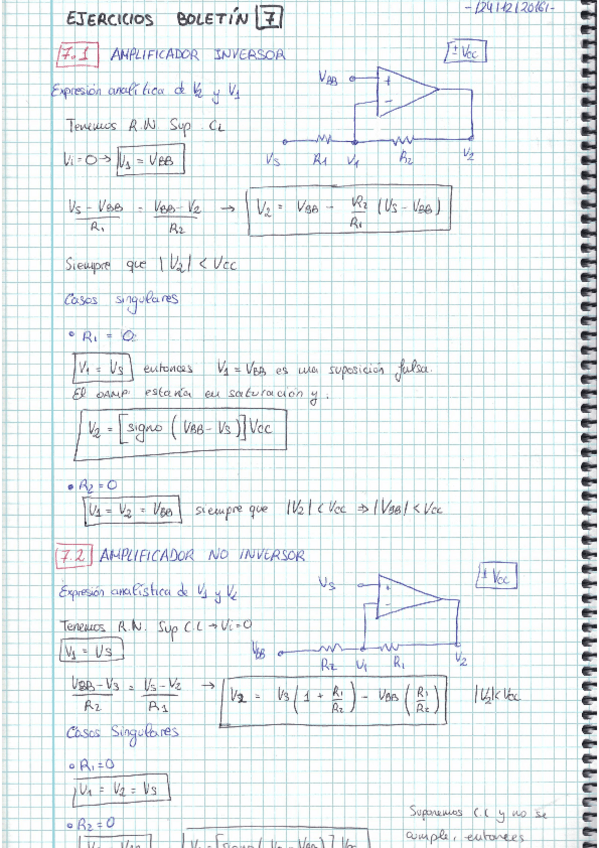 EJERCICIOS BOLETÍN 7
-12411212016|-
7.1 AMPLIFICADOR INVERSOR
± Vcc
Expresión analítica de V2 y V1
VBB + -
Tenemos R.N Sup. CL
Vi = 0 → V1 = VBB
VS R1 V1 R2 V2
VS - VBB / R1 = VBB - V2 / R2 → V2 = VBB - R2 / R1 (VS - VBB)
Siempre que |V2| < VCC
Casos singulares
• R1 = 0:
V1 = VS entonces V1 = VBB es una suposición falsa.
El OAMP estaría en saturación y.
V2 = [signo (VBB - VS)] VCC
• R2 = 0
V1 = V2 = VBB siempre que |V2| < VCC ⇒ |VBB| < VCC
7.2 AMPLIFICADOR NO INVERSOR
± VCC
Expresión analística de V1 y V2
VS + -
Tenemos R.N. Sup C.L → Vi = 0
V1 = VS
VBB R2 V1 R1 V2
VBB - VS / R2 = VS - V2 / R1 → V2 = VS (1 + R1 / R2) - VBB (R1 / R2) |V2| < VCC
Casos Singulares
• R1 = 0
V1 = V2 = VS
Suponemos C.L y no se
• R2 = 0
cumple, entonces